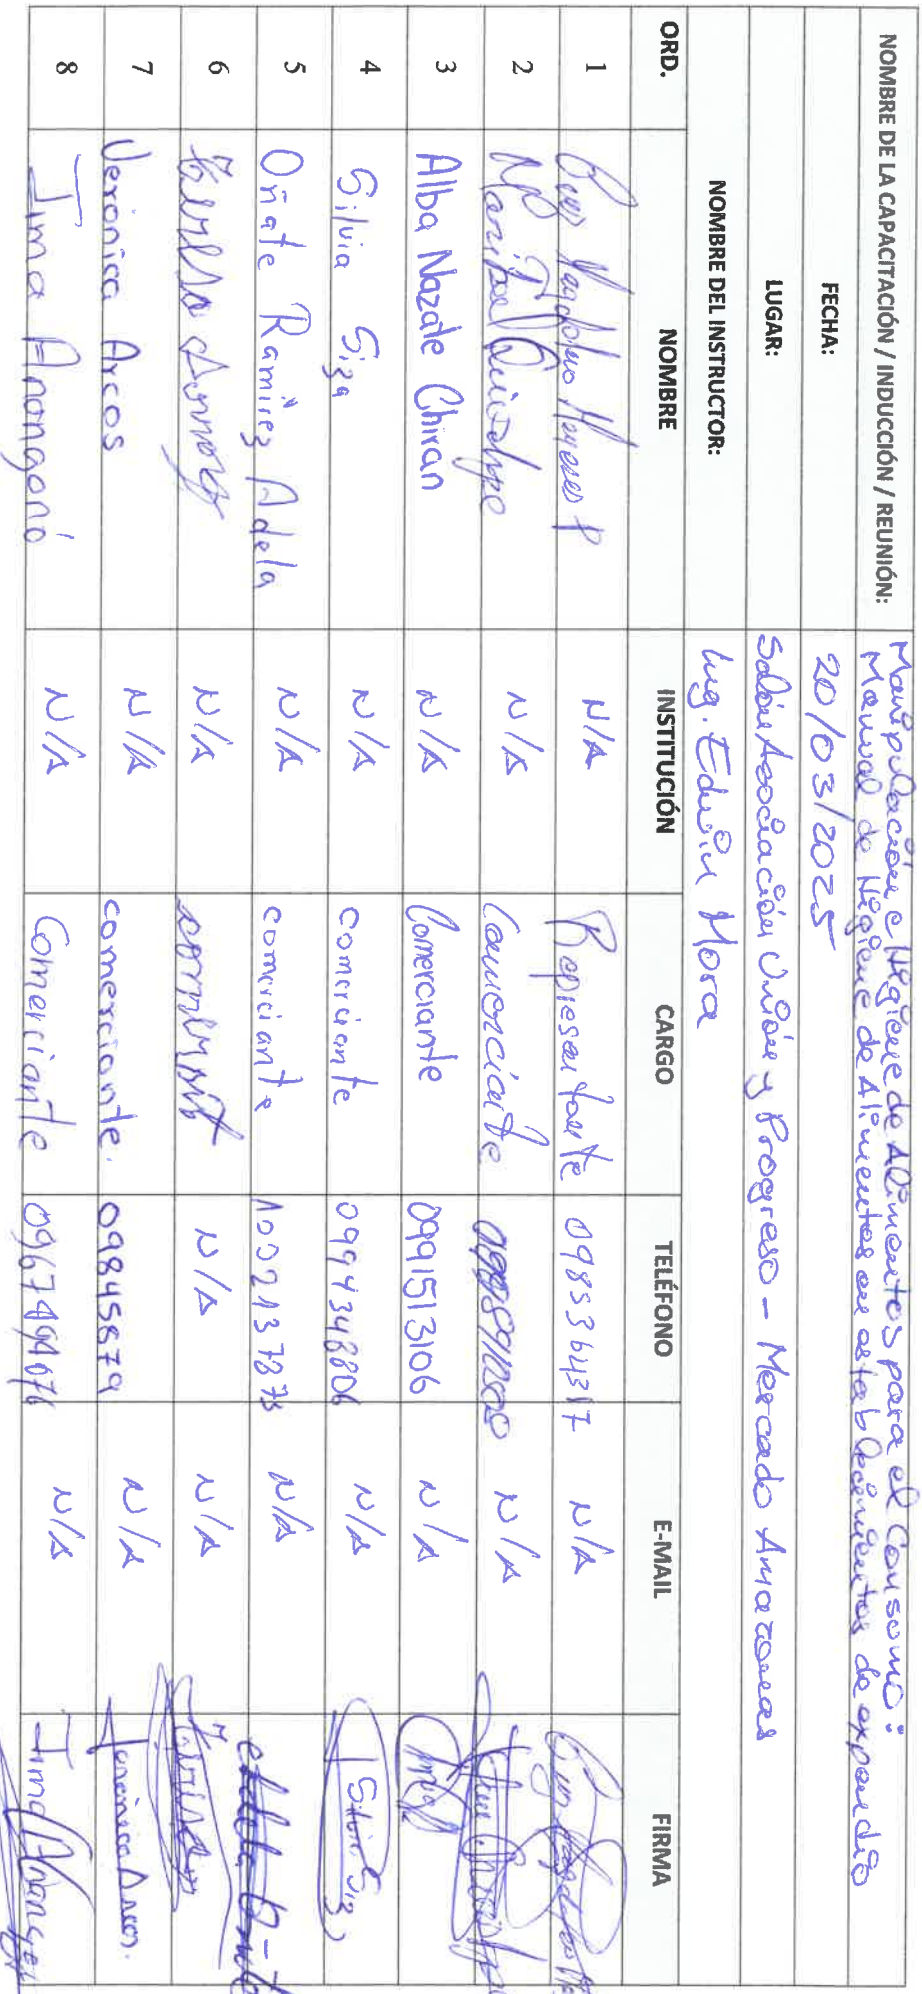 NOMBRE DE LA CAPACITACIÓN / INDUCCIÓN / REUNIÓN: Manipulación e Higiene de Alimentos para el Consumo:
Manual de Higiene de Alimentos en establecimientos de expendio
FECHA: 20/03/2025
LUGAR: Salón Asociación Unión y Progreso - Mercado Amazonas
NOMBRE DEL INSTRUCTOR: Ing. Edwin Mora
ORD. NOMBRE INSTITUCIÓN CARGO TELÉFONO E-MAIL FIRMA
1 N/A Representante N/A
2 Maribel N/A Comerciante N/A
3 Alba Nazate Chiran N/A Comerciante 0991513106 N/A
4 Silvia Siza N/A comerciante 0994348806 N/A Silvia Siza
5 Oñate Ramírez Adela N/A comerciante N/A
6 N/A N/A N/A
7 Veronica Arcos N/A comerciante. 098458679 N/A Veronica Arcos.
8 Irma Anangonó N/A Comerciante N/A Irma